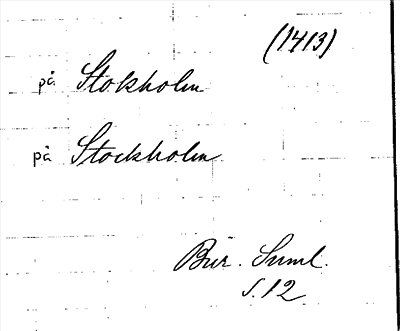 (1413)
på Stokholm
på Stockholm
Bur. Suml.
S. 12